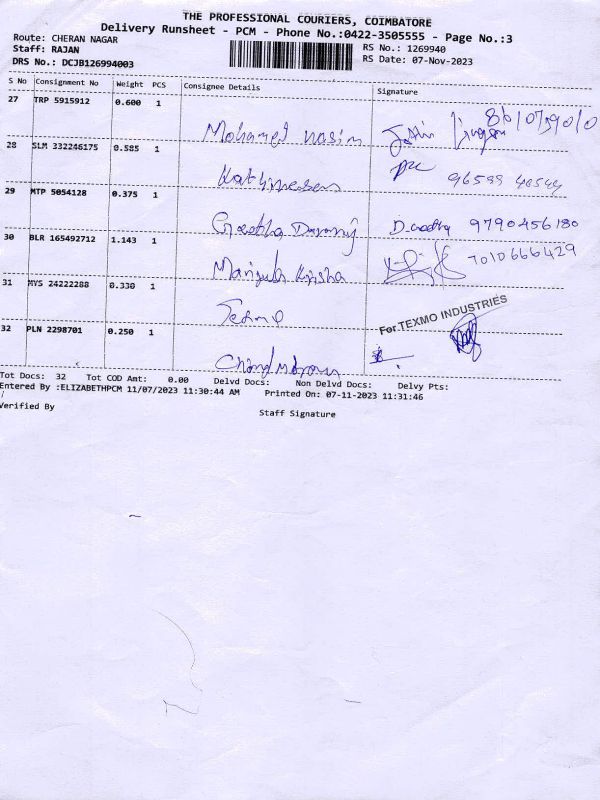 THE PROFESSIONAL COURIERS, COIMBATORE
Delivery Runsheet - PCM - Phone No.:0422-3505555 - Page No.:3
Route: CHERAN NAGAR
Staff: RAJAN
DRS No.: DCJB126994003
RS No.: 1269940
RS Date: 07-Nov-2023
S No Consignment No Weight PCS Consignee Details Signature
27 TRP 5915912 0.600 1
Mohamed nasim
28 SLM 332246175 0.585 1
96599 40544
29 MTP 5054128 0.375 1
Geetha 9790456180
30 BLR 165492712 1.143 1
Manjula Krisha 7010666429
31 MYS 24222288 0.330 1
For TEXMO INDUSTRIES
32 PLN 2298701 0.250 1
Tot Docs: 32 Tot COD Amt: 0.00 Delvd Docs: Non Delvd Docs: Delvy Pts:
Entered By :ELIZABETHPCM 11/07/2023 11:30:44 AM Printed On: 07-11-2023 11:31:46
/
Verified By
Staff Signature